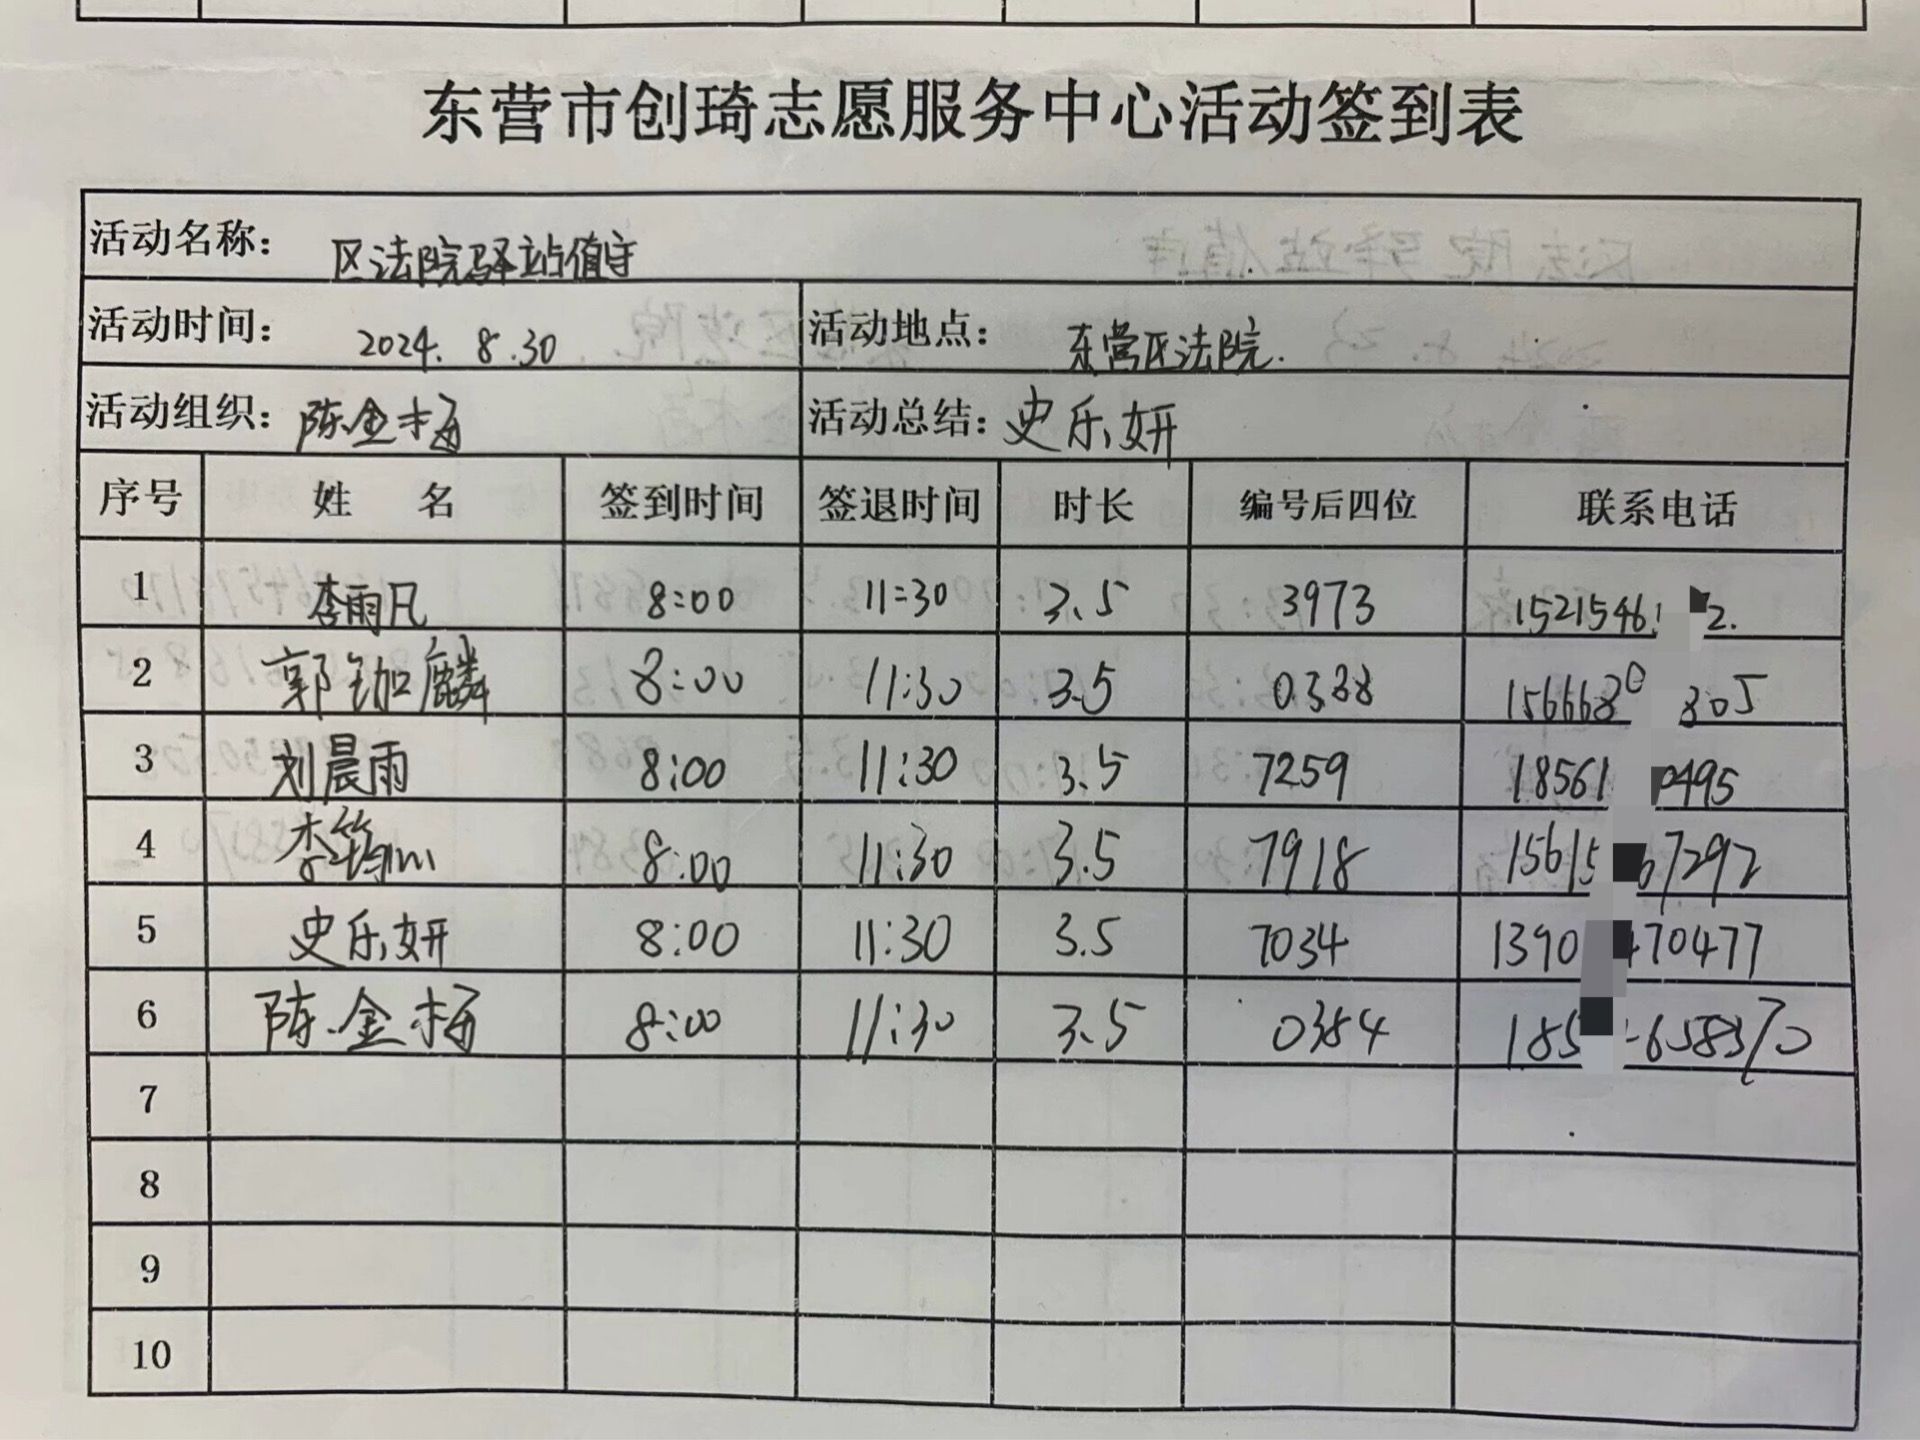 东营市创琦志愿服务中心活动签到表
活动名称： 区法院驿站值守
活动时间： 2024. 8.30 活动地点： 东营区法院.
活动组织：陈金梅 活动总结：史乐妍
序号 姓 名 签到时间 签退时间 时长 编号后四位 联系电话
1 李雨凡 8:00 11:30 3.5 3973 1521546 2.
2 郭铷麟 8:00 11:30 3.5 0338 1566680 805
3 刘晨雨 8:00 11:30 3.5 7259 18561 0495
4 李筠 8:00 11:30 3.5 7918 15615 67292
5 史乐妍 8:00 11:30 3.5 7034 1390 470477
6 陈金梅 8:00 11:30 3.5 0384 185 658370
7
8
9
10